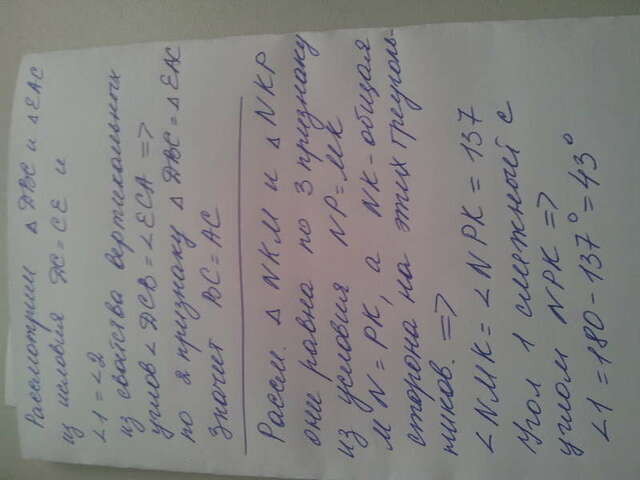 Рассмотрим △ DBC и △ EAC
из условия DC = CE и
∠1 = ∠2
из свойства вертикальных
углов ∠DCB = ∠ECA =>
по 2 признаку △ DBC = △ EAC
значит BC = AC
Рассм. △ NKM и △ NKP
они равны по 3 признаку
из условия NP = MK
MN = PK, а NK - общая
сторона на этих треуголь-
ников. =>
∠NMK = ∠NPK = 137
Угол 1 смежный с
углом NPK =>
∠1 = 180 - 137° = 43°